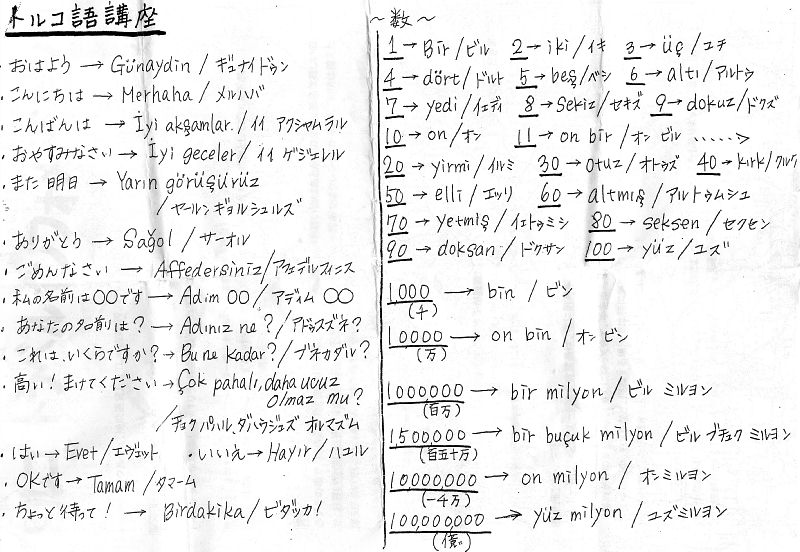 トルコ語講座
・おはよう → Günaydin / ギュナイドゥン
・こんにちは → Merhaha / メルハバ
・こんばんは → İyi akşamlar. / イイ アクシャムラル
・おやすみなさい → İyi geceler / イイ ゲジェレル
・また明日 → Yarın görüşürüz
/ ヤールンギョルシュルズ
・ありがとう → Sağol / サーオル
・ごめんなさい → Affedersiniz / アフェデルスィニス
・私の名前は〇〇です → Adim 〇〇 / アディム 〇〇
・あなたの名前は? → Adınız ne? / アドゥスズネ?
・これは、いくらですか? → Bu ne kadar? / ブネカダル?
・高い!まけてください → Çok pahalı, daha ucuz
olmaz mu?
/ チョクパハル、ダハウジュズ オルマズム
・はい → Evet / エヴェット ・いいえ → Hayır / ハユル
・OKです → Tamam / タマーム
・ちょっと待って! → Birdakika / ビダッカ!
〜数〜
1 → Bir / ビル 2 → iki / イキ 3 → üç / ユチ
4 → dört / ドルト 5 → beş / ベシ 6 → altı / アルトゥ
7 → yedi / イェディ 8 → sekiz / セキズ 9 → dokuz / ドクズ
10 → on / オン 11 → on bir / オン ビル ・・・・・>
20 → yirmi / イルミ 30 → otuz / オトゥズ 40 → kırk / クルク
50 → elli / エッリ 60 → altmış / アルトゥムシュ
70 → yetmiş / イェトゥミシ 80 → seksen / セクセン
90 → doksan / ドクサン 100 → yüz / ユズ
1000 → bin / ビン
(千)
10000 → on bin / オン ビン
(万)
1000000 → bir milyon / ビル ミルヨン
(百万)
1500,000 → bir buçuk milyon / ビル ブチュク ミルヨン
(百五十万)
10000000 → on milyon / オンミルヨン
(一千万)
100,000,000 → yüz milyon / ユズミルヨン
(億)